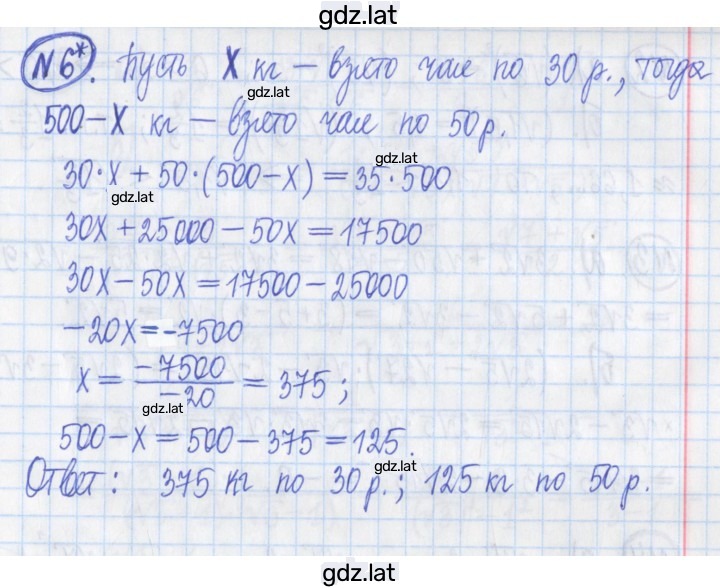 gdz.lat
N6*. Пусть X кг – взято чая по 30 р., тогда
gdz.lat
500-X кг – взято чая по 50р.
gdz.lat
30·X + 50·(500-X) = 35·500
gdz.lat
30X + 25000 - 50X = 17500
30X - 50X = 17500 - 25000
-20X = -7500
X = -7500/-20 = 375;
gdz.lat
500 - X = 500 - 375 = 125.
gdz.lat
Ответ: 375 кг по 30 р.; 125 кг по 50 р.
gdz.lat